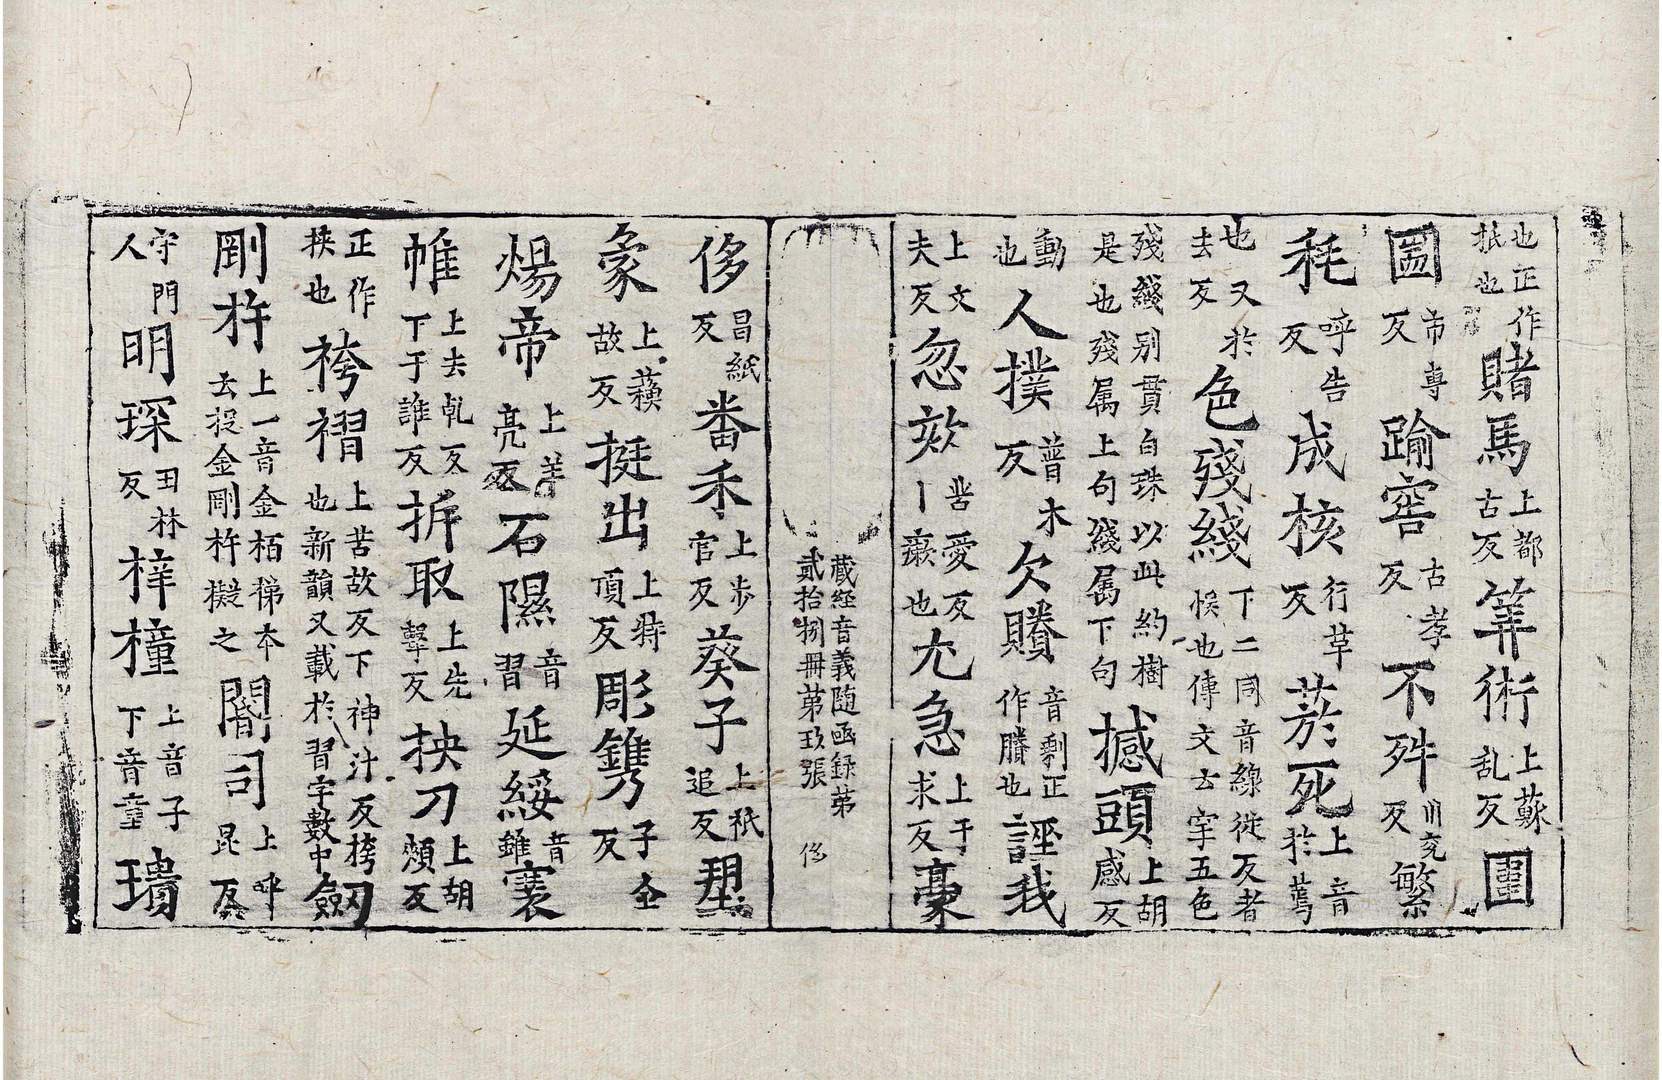 也正作抵也賭馬上都古反筭術上蘇乱反圕
圌市專反踰窖古孝反不舛川兖反繁
秏呼告反成核行草反菸死上音於蔫
也又於去反色殘綫下二同音線徙反者悮也傳文去宇五色
殘綫别貫白珠以此約樹是也殘属上句綫属下句撼頭上胡感反
動也人撲普木反欠賸音剩正作賸也誣我
上文夫反忽欬苦愛反丨瘶也尤急上于求反稾
藏経音義随函録苐貳拾捌冊苐玖張 侈
侈昌紙反番禾上步官反葵子上祇追反琞
彖上蘱故反挺出上特頂反彫鐫子全反
煬帝上羊亮反石隰音習延綏音錐寰
帷上去乹反下于誰反拆取上先擊反抰刀上胡頰反
正作挾也袴褶上苦故反下神汁反袴也新韻又載於習字數中劔
剛杵上一音金栢梯本云投金剛杵擬之閽司上呼昆反
守門人明琛田林反梓橦上音子下音童璝